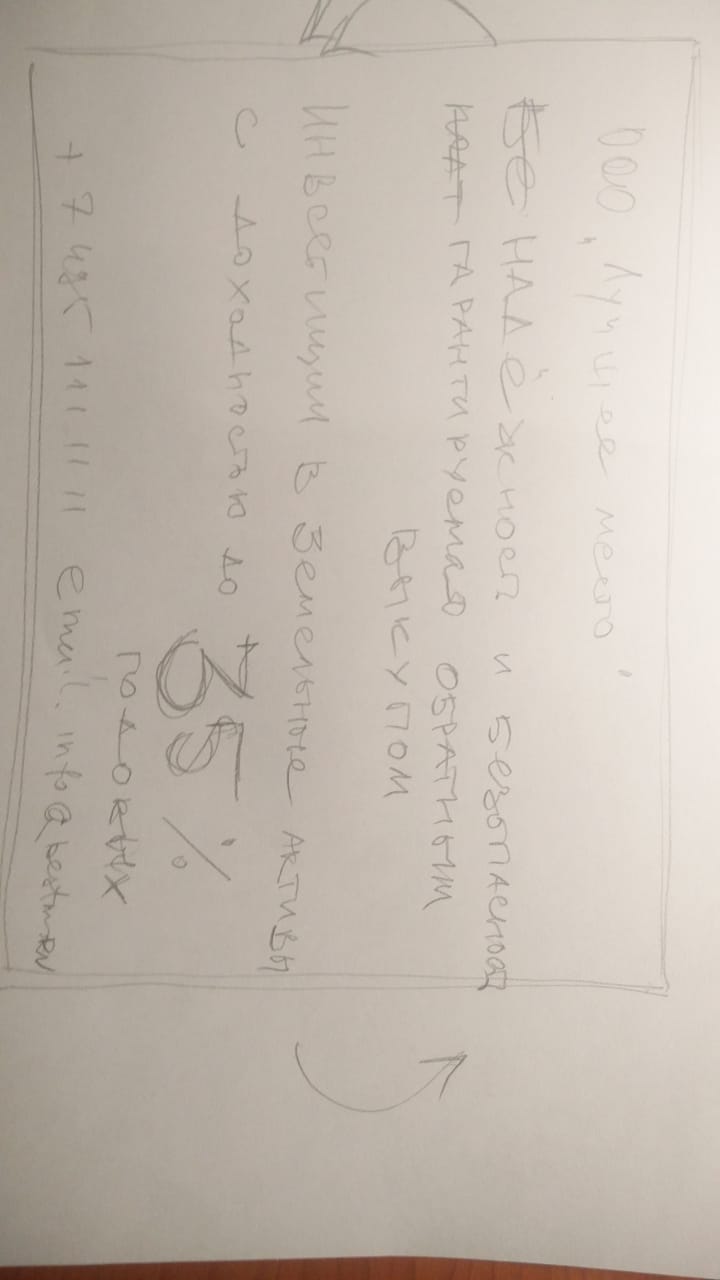 ООО "Лучшее место"
НАДЁЖНОСТЬ И БЕЗОПАСНОСТЬ
ГАРАНТИРУЕМАЯ ОБРАТНЫМ
ВЫКУПОМ
ИНВЕСТИЦИИ В Земельные АКТИВЫ
С доходностью до
35%
годовых
+7 495 111 11 11 email. info@